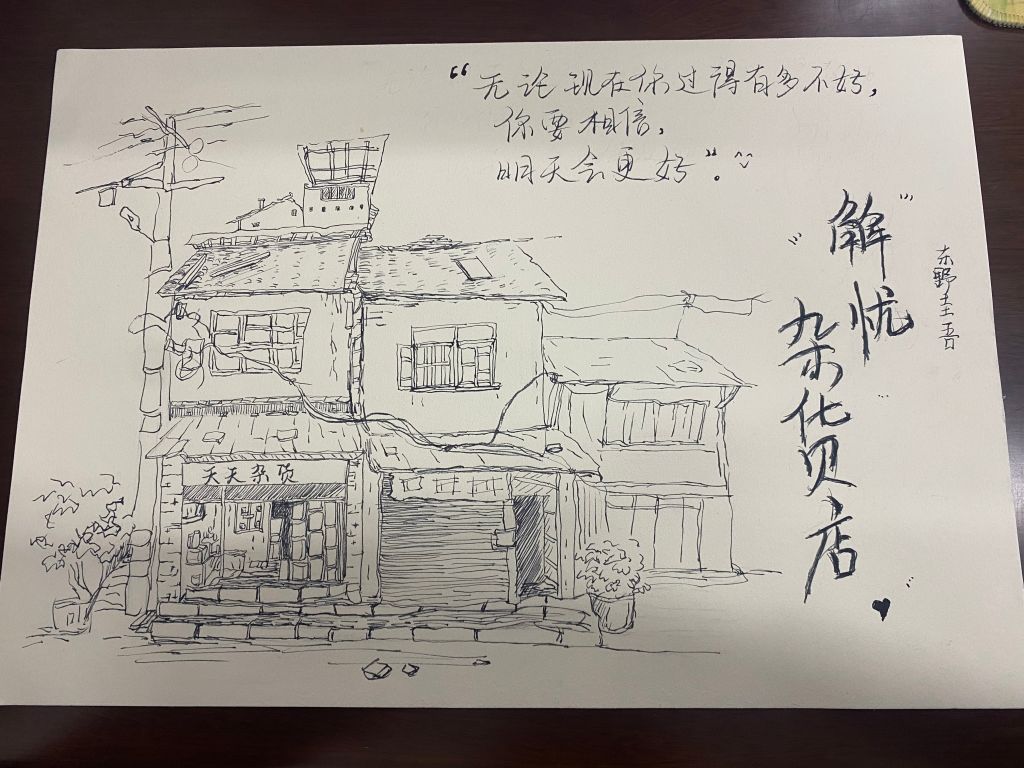 “无论现在你过得有多不好，
你要相信，
明天会更好”。^^
"解忧
杂货店"
东野圭吾
天天杂货